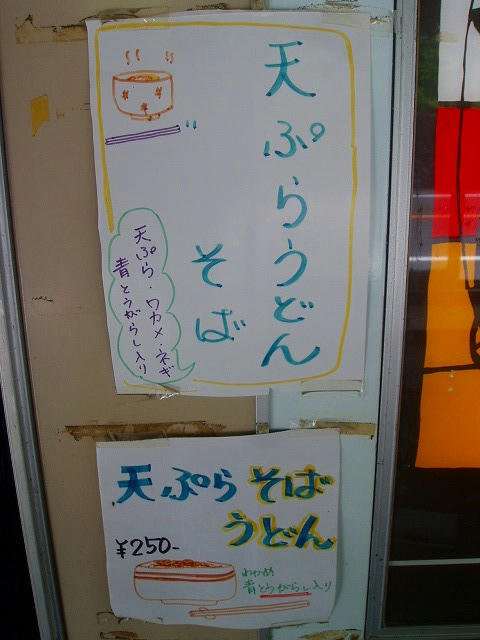 天ぷらうどん
そば
天ぷら・ワカメ・ネギ
青とうがらし入り
天ぷら そば
うどん
¥250-
わかめ
青とうがらし入り